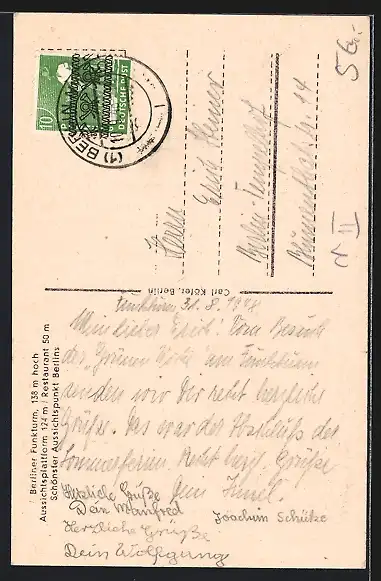 5.-
10
DEUTSCHE POST
(1) BERLIN
Herrn
Erich Steiner
Berlin-Tempelhof
14
II
Carl Köfer, Berlin
Berliner Funkturm, 138 m hoch
Aussichtsplattform 124 m / Restaurant 50 m
Schönster Aussichtspunkt Berlins
Funkturm, 31. 8. 1948
Mein lieber Erich! Vom Besuch
der „Grünen Woche" am Funkturm
senden wir Dir recht herzliche
Grüße. Das war der Abschluß der
Sommerferien. Recht herzl. Grüße
Dein
Herzliche Grüße
Dein Manfred
Joachim Schütze
Herzliche Grüße
Dein Wolfgang